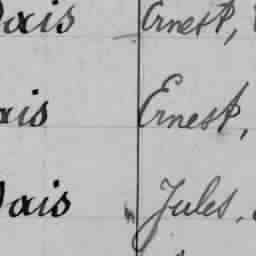 Dais Ernest,
ais Ernest,
Dais Jules,